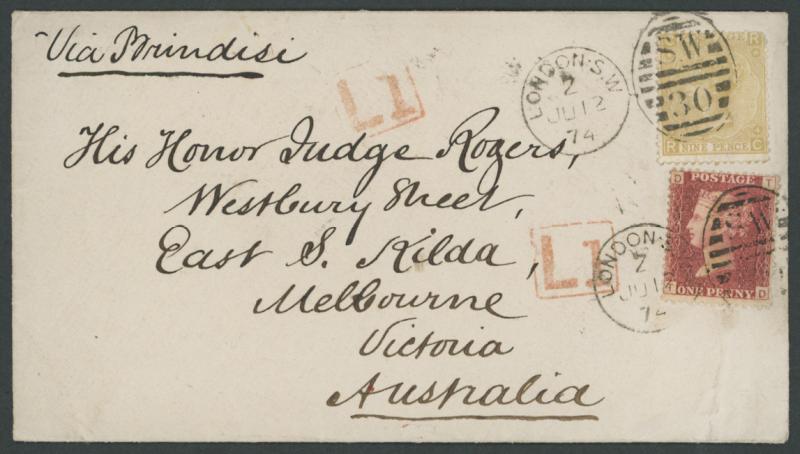 Via Brindisi
L1
LONDON·S.W
Z
JU 12
74
S.W
30
R
R NINE PENCE C
His Honor Judge Rogers,
Westbury Street,
East S. Kilda,
Melbourne
Victoria
Australia
L1
LONDON·S
Z
JU 12
74
D POSTAGE T
S.W
ONE PENNY D